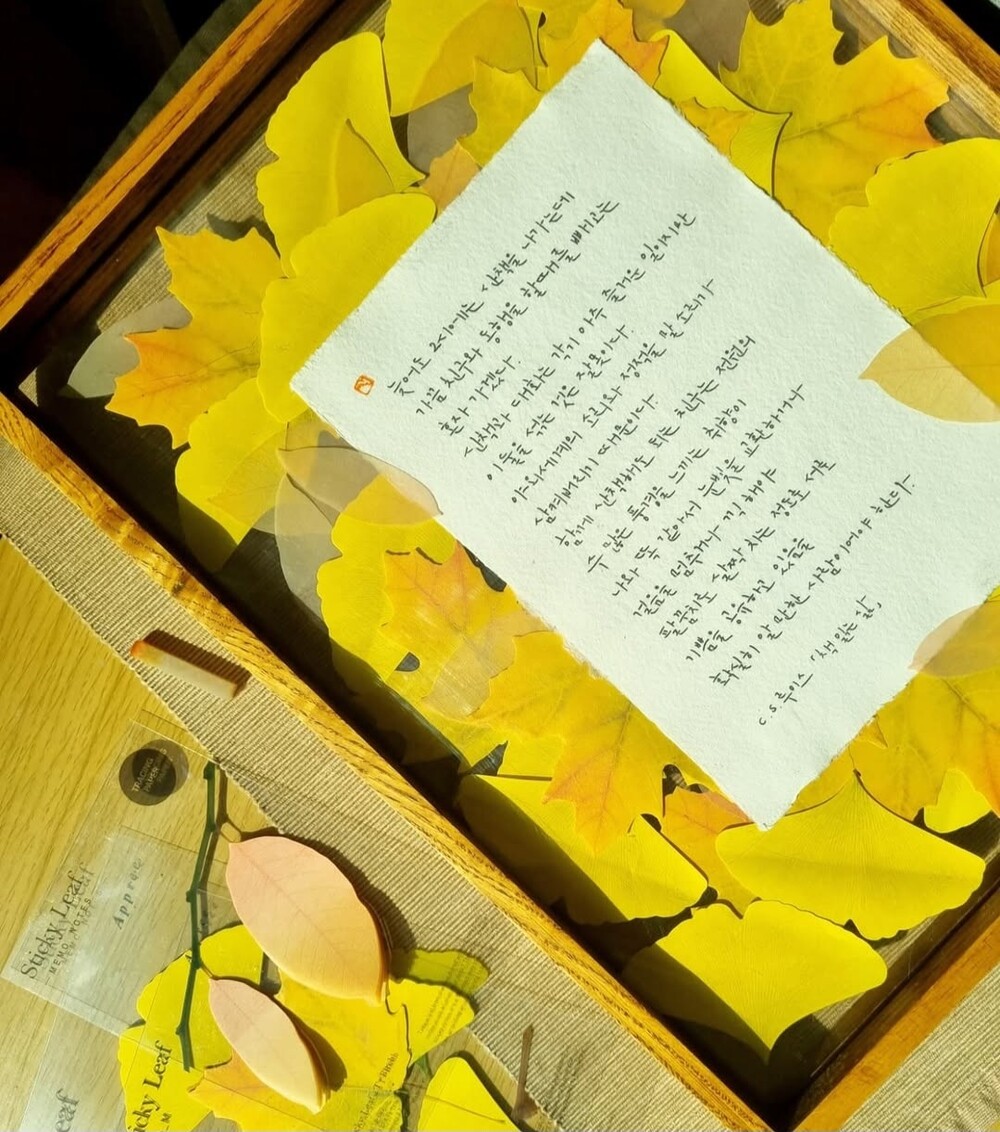 늦어도 2시에는 산책을 나가는데
가끔 친구와 동행을 할때를 빼고는
혼자 가겠다.
산책과 대화는 각기 아주 즐거운 일이지만
이 둘을 섞는 것은 잘못이다.
야외세계의 소리와 정적을 말 소리가
삼켜버리기 때문이다
함께 산책해도 되는 친구는 전원의
수 많은 풍경을 느끼는 취향이
나와 똑 같아서 눈빛을 교환하거나
걸음을 멈추거나 끽해야
팔꿈치로 살짝 치는 정도로 서로
기쁨을 공유하고 있음을
확실히 알 만한 사람이어야 한다.
C.S.루이스 「책 읽는 삶」
TRACING PAPER
Sticky Leaf
MEMO NOTES
Appree
icky Leaf
eaf